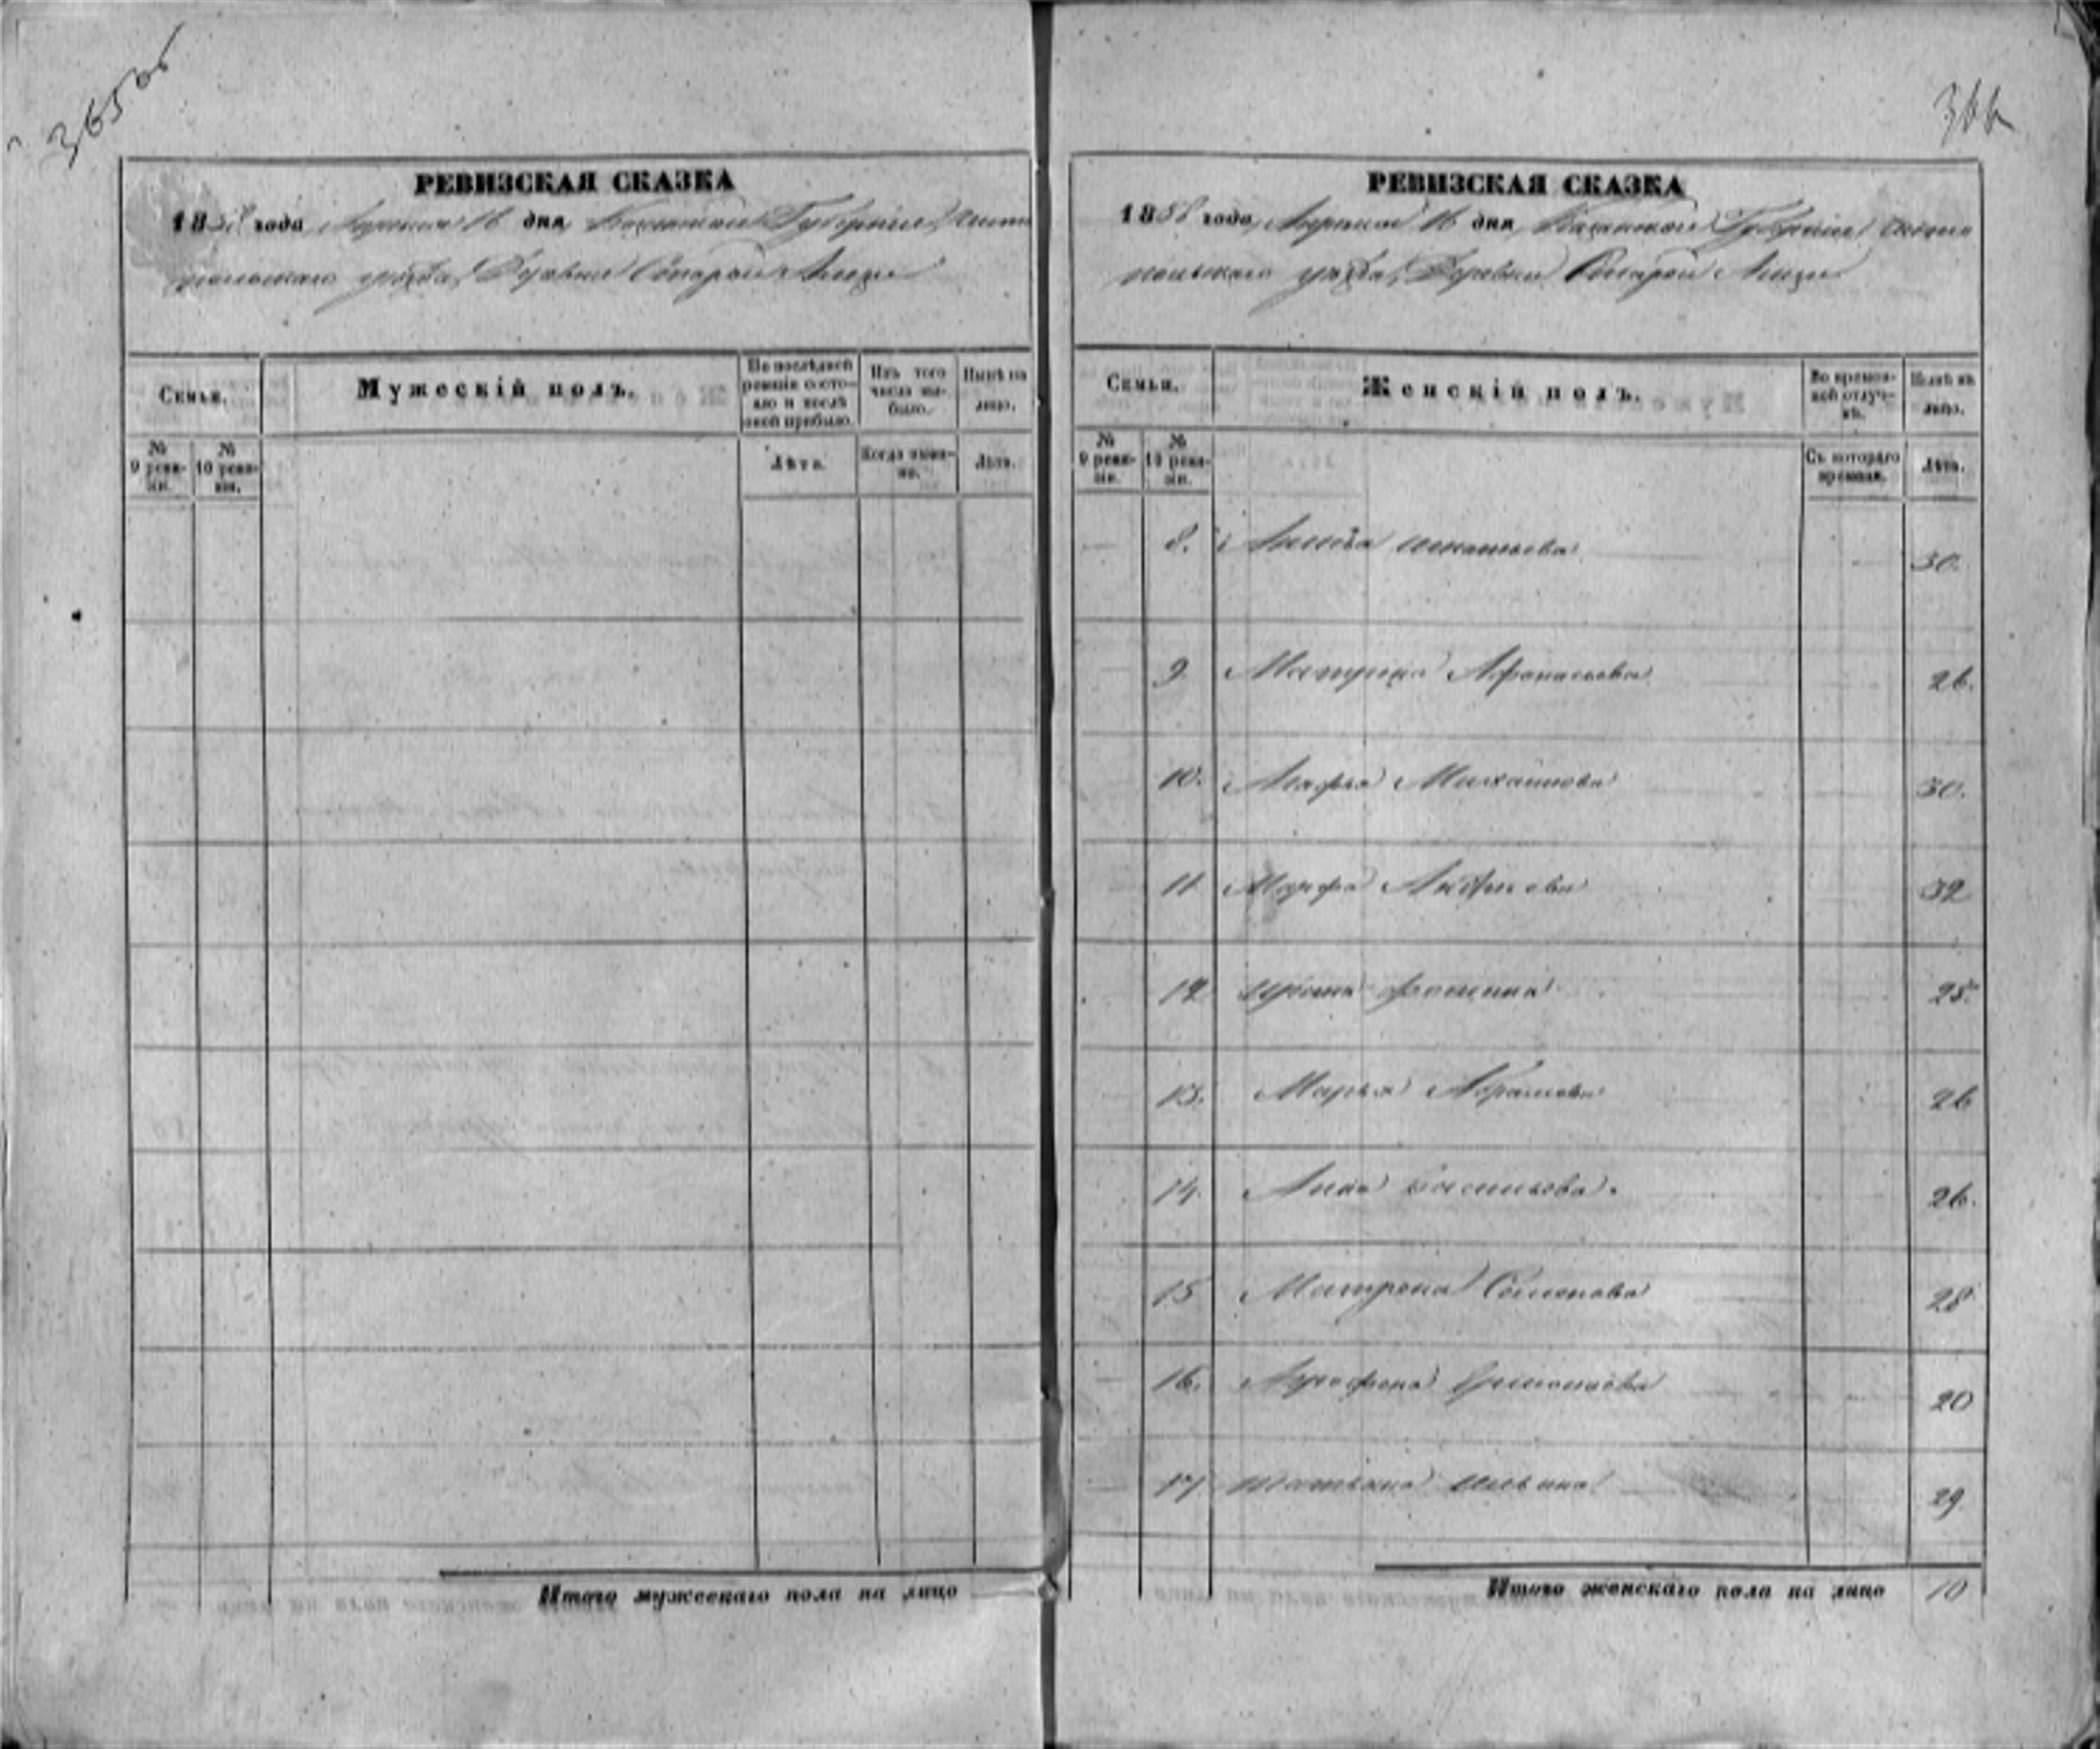 365 об
РЕВИЗСКАЯ СКАЗКА
1858 года Апреля 16 дня Казанской Губернии Чисто
польскаго уезда, Деревни Старой
Семьи.
Мужескій полъ.
По послѣдней ревизіи состояло и послѣ оной прибыло.
Изъ того числа выбыло.
Нынѣ на лицо.
№ 9 ревизіи.
№ 10 ревизіи.
Лѣта.
Когда именно.
Лѣта.
Итого мужескаго пола на лицо
366
РЕВИЗСКАЯ СКАЗКА
1858 года, Апреля 16 дня, Казанской Губерніи Чисто
польскаго уезда, Деревни Старой
Семьи.
Женскій полъ.
Во временной отлучкѣ.
Нынѣ на лицо.
№ 9 ревизіи.
№ 10 ревизіи.
Съ котораго времени.
Лѣта.
8. Игнатьева 30.
9 Афонасьева 26.
10. Агафья Михайлова 30.
11 Марфа 32
12 Ирина Фомина 25.
13. Марья Абрамова 26
14. Анна Васильева. 26.
15 Матрена Семенова 28
16. Аграфена Ермолаева 20
17 Татьяна Ильина 29
Итого женскаго пола на лицо 10